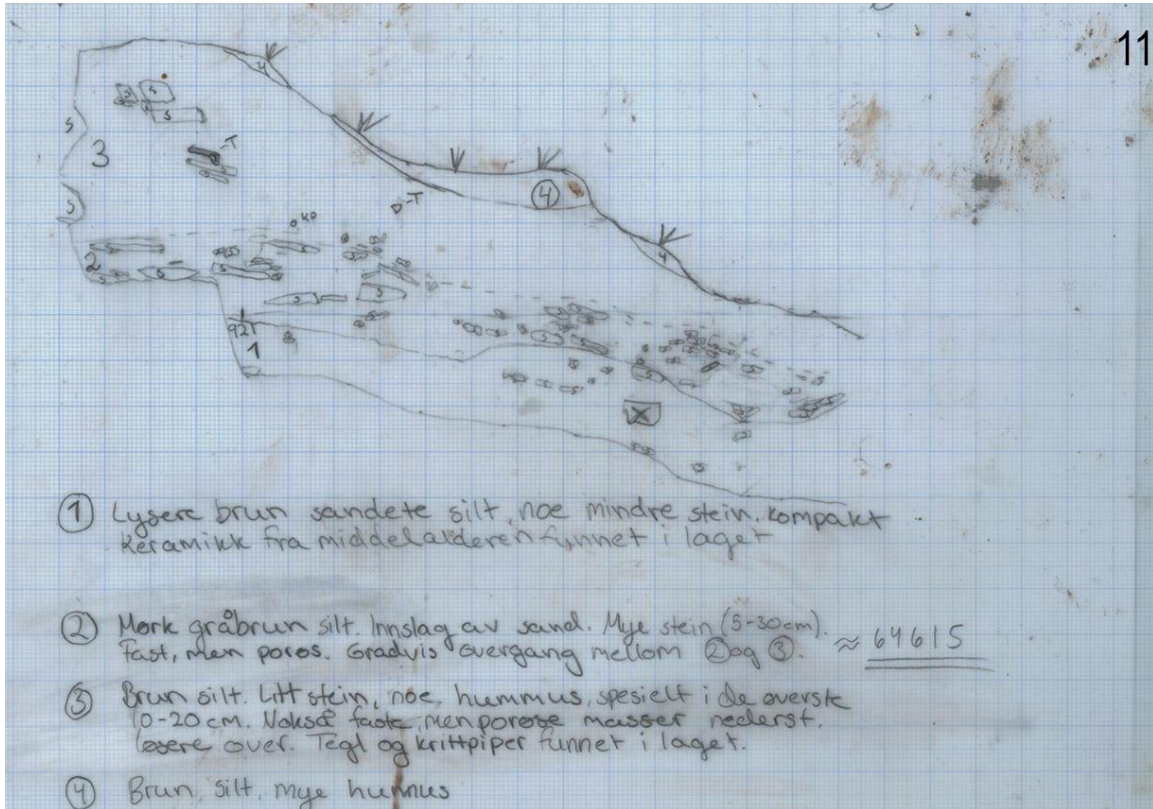 11
4
s
s
s
s
3
-T
s
4
-T
KP
4
2
s
s
s
s
921
1
s
X
① Lysere brun sandete silt, noe mindre stein. kompakt
keramikk fra middelalderen funnet i laget
② Mørk gråbrun silt. Innslag av sand. Mye stein (5-30cm).
Fast, men porøs. Gradvis overgang mellom ② og ③. ≈ 64615
③ Brun silt. Litt stein, noe, hummus, spesielt i de øverste
0-20 cm. Nokså faste, men porøse masser nederst.
løsere over. Tegl og krittpiper funnet i laget.
④ Brun, silt, mye hummus